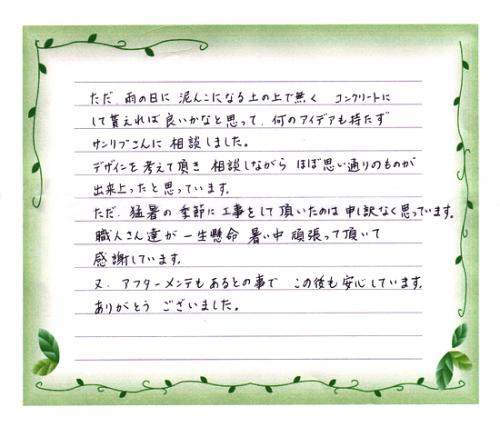 ただ、雨の日に 泥んこになる土の上で無く コンクリートに
して貰えれば良いかなと思って、何のアイデアも持たず
サンリブさんに 相談しました。
デザインを考えて頂き 相談しながら ほぼ思い通りのものが
出来上ったと思っています。
ただ、猛暑の季節に工事をして頂いたのは 申し訳なく思っています。
職人さん達が 一生懸命 暑い中 頑張って頂いて
感謝しています。
又、アフターメンテもあるとの事で この後も安心しています。
ありがとう ございました。